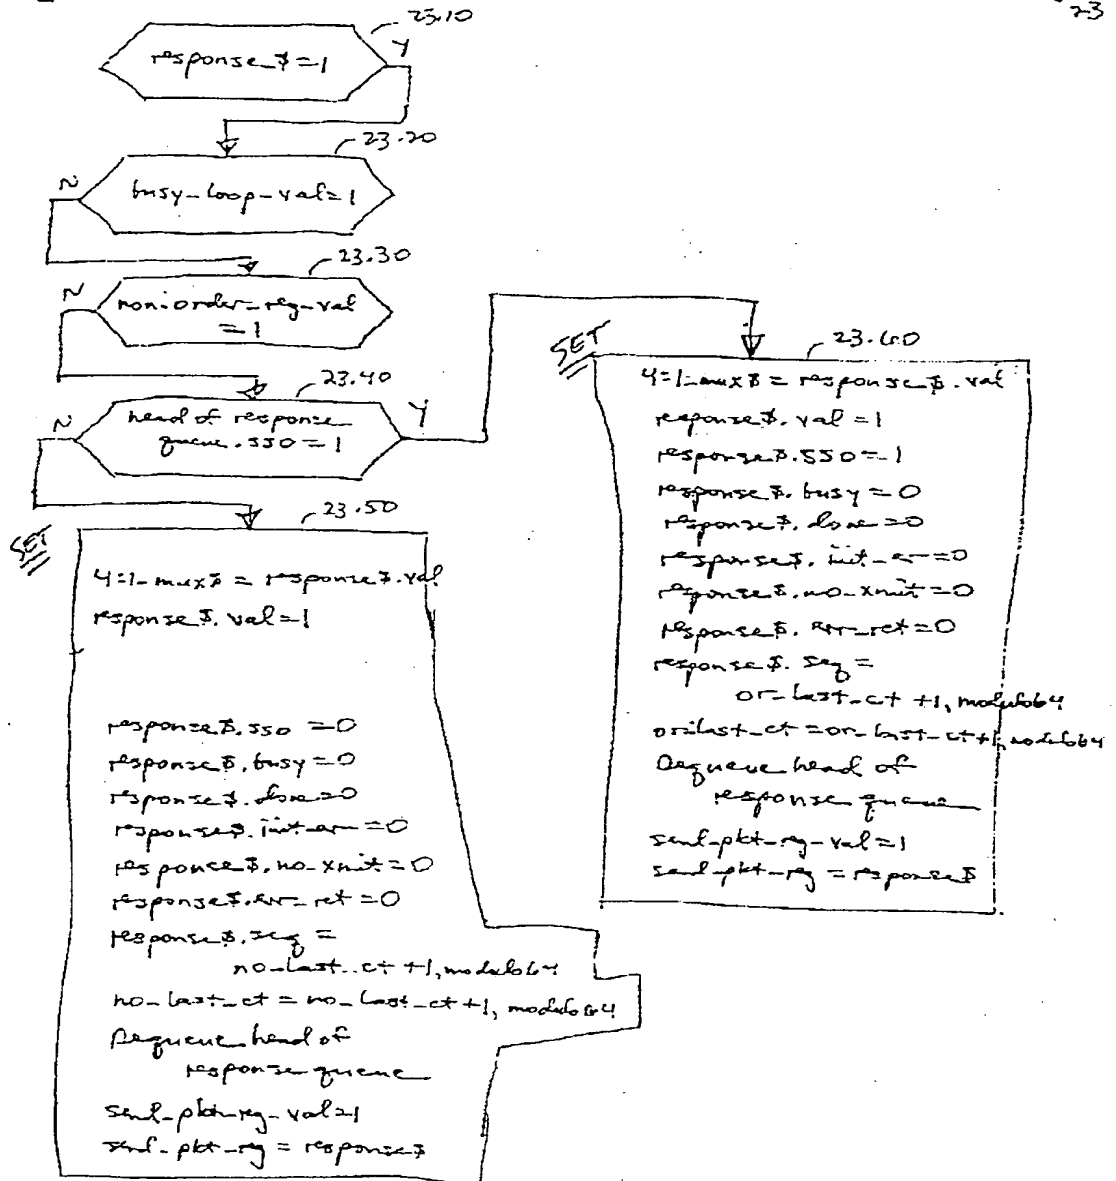 23
23.10
response_$=1
Y
23.20
N
busy-loop-val=1
23.30
N
non-order-reg-val
=1
23.40
N
head of response
queue.sso=1
Y
23.50
SET
4=1-mux$ = response$.val
response$.val=1
response$.sso=0
response$.busy=0
response$.done=0
response$.init-err=0
response$.no-xmit=0
response$.err-ret=0
response$.seq=
no-last-ct +1, modulo64
no-last-ct = no-last-ct+1, modulo64
Dequeue head of
response queue
send-pkt-reg-val=1
send-pkt-reg = response$
SET
23.60
4=1-mux$ = response$.val
response$.val=1
response$.sso=1
response$.busy=0
response$.done=0
response$.init-err=0
response$.no-xmit=0
response$.err-ret=0
response$.seq=
or-last-ct +1, modulo64
or-last-ct = or-last-ct+1, modulo64
Dequeue head of
response queue
send-pkt-reg-val=1
send-pkt-reg = response$